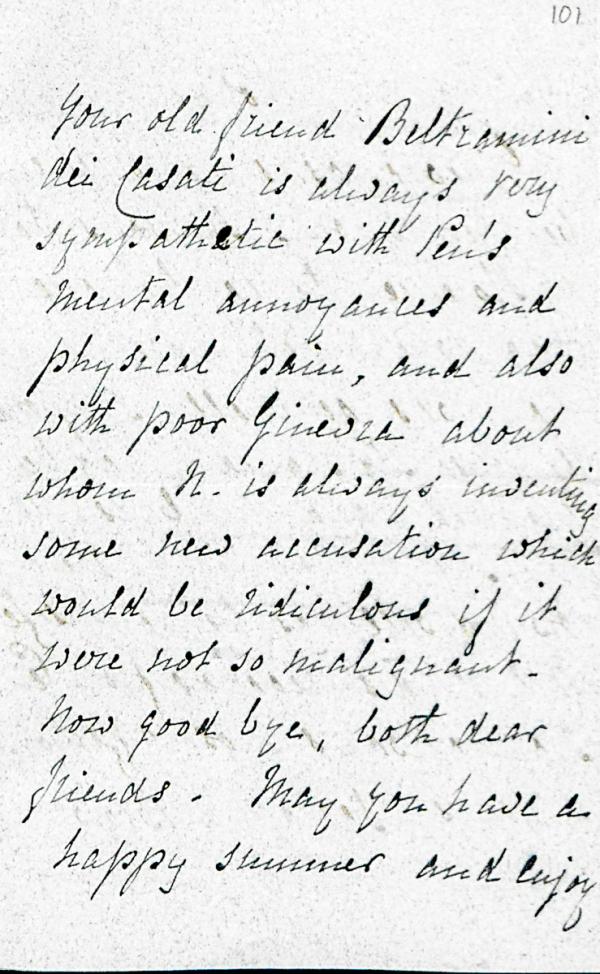 101
Your old friend Beltramini
dei Casati is always very
sympathetic with Pen's
mental annoyances and
physical pain, and also
with poor Ginevra about
whom N. is always inventing
some new accusation which
would be ridiculous if it
were not so malignant.
Now good bye, both dear
friends. May you have a
happy summer and enjoy